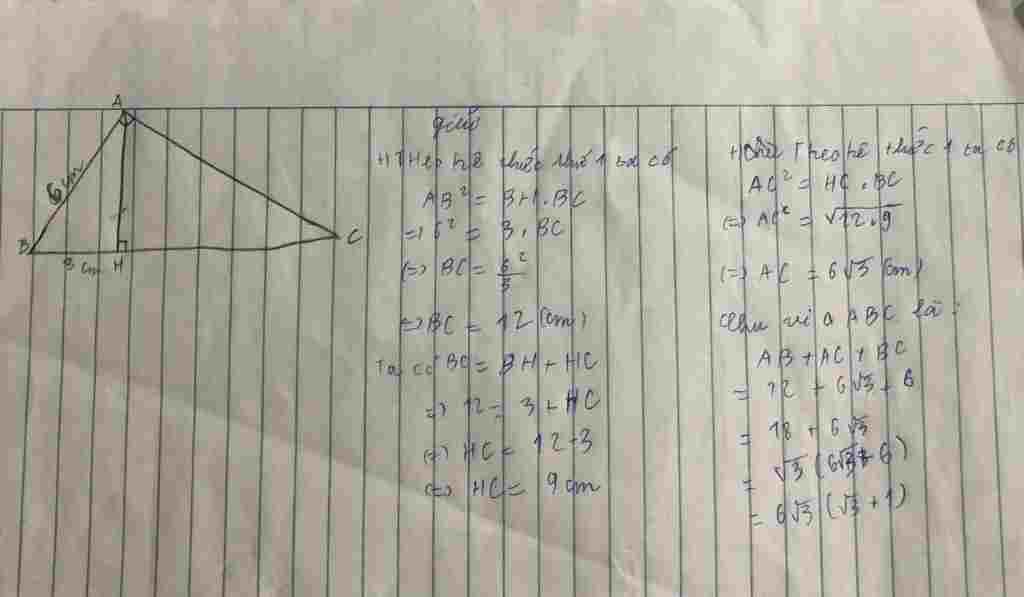 A
6 cm
B
3 cm
H
C
giải
Theo hệ thức thứ 1 ta có
AB² = BH . BC
=> 6² = 3 . BC
<=> BC = 6²/3
<=> BC = 12 (cm)
Ta có BC = BH + HC
=> 12 = 3 + HC
<=> HC = 12 - 3
<=> HC = 9 cm
Theo hệ thức 1 ta có
AC² = HC . BC
<=> AC² = √12.9
<=> AC = 6√3 (cm)
Chu vi ABC là :
AB + AC + BC
= 12 + 6√3 + 6
= 18 + 6√3
= 6√3 (√3 + 1)